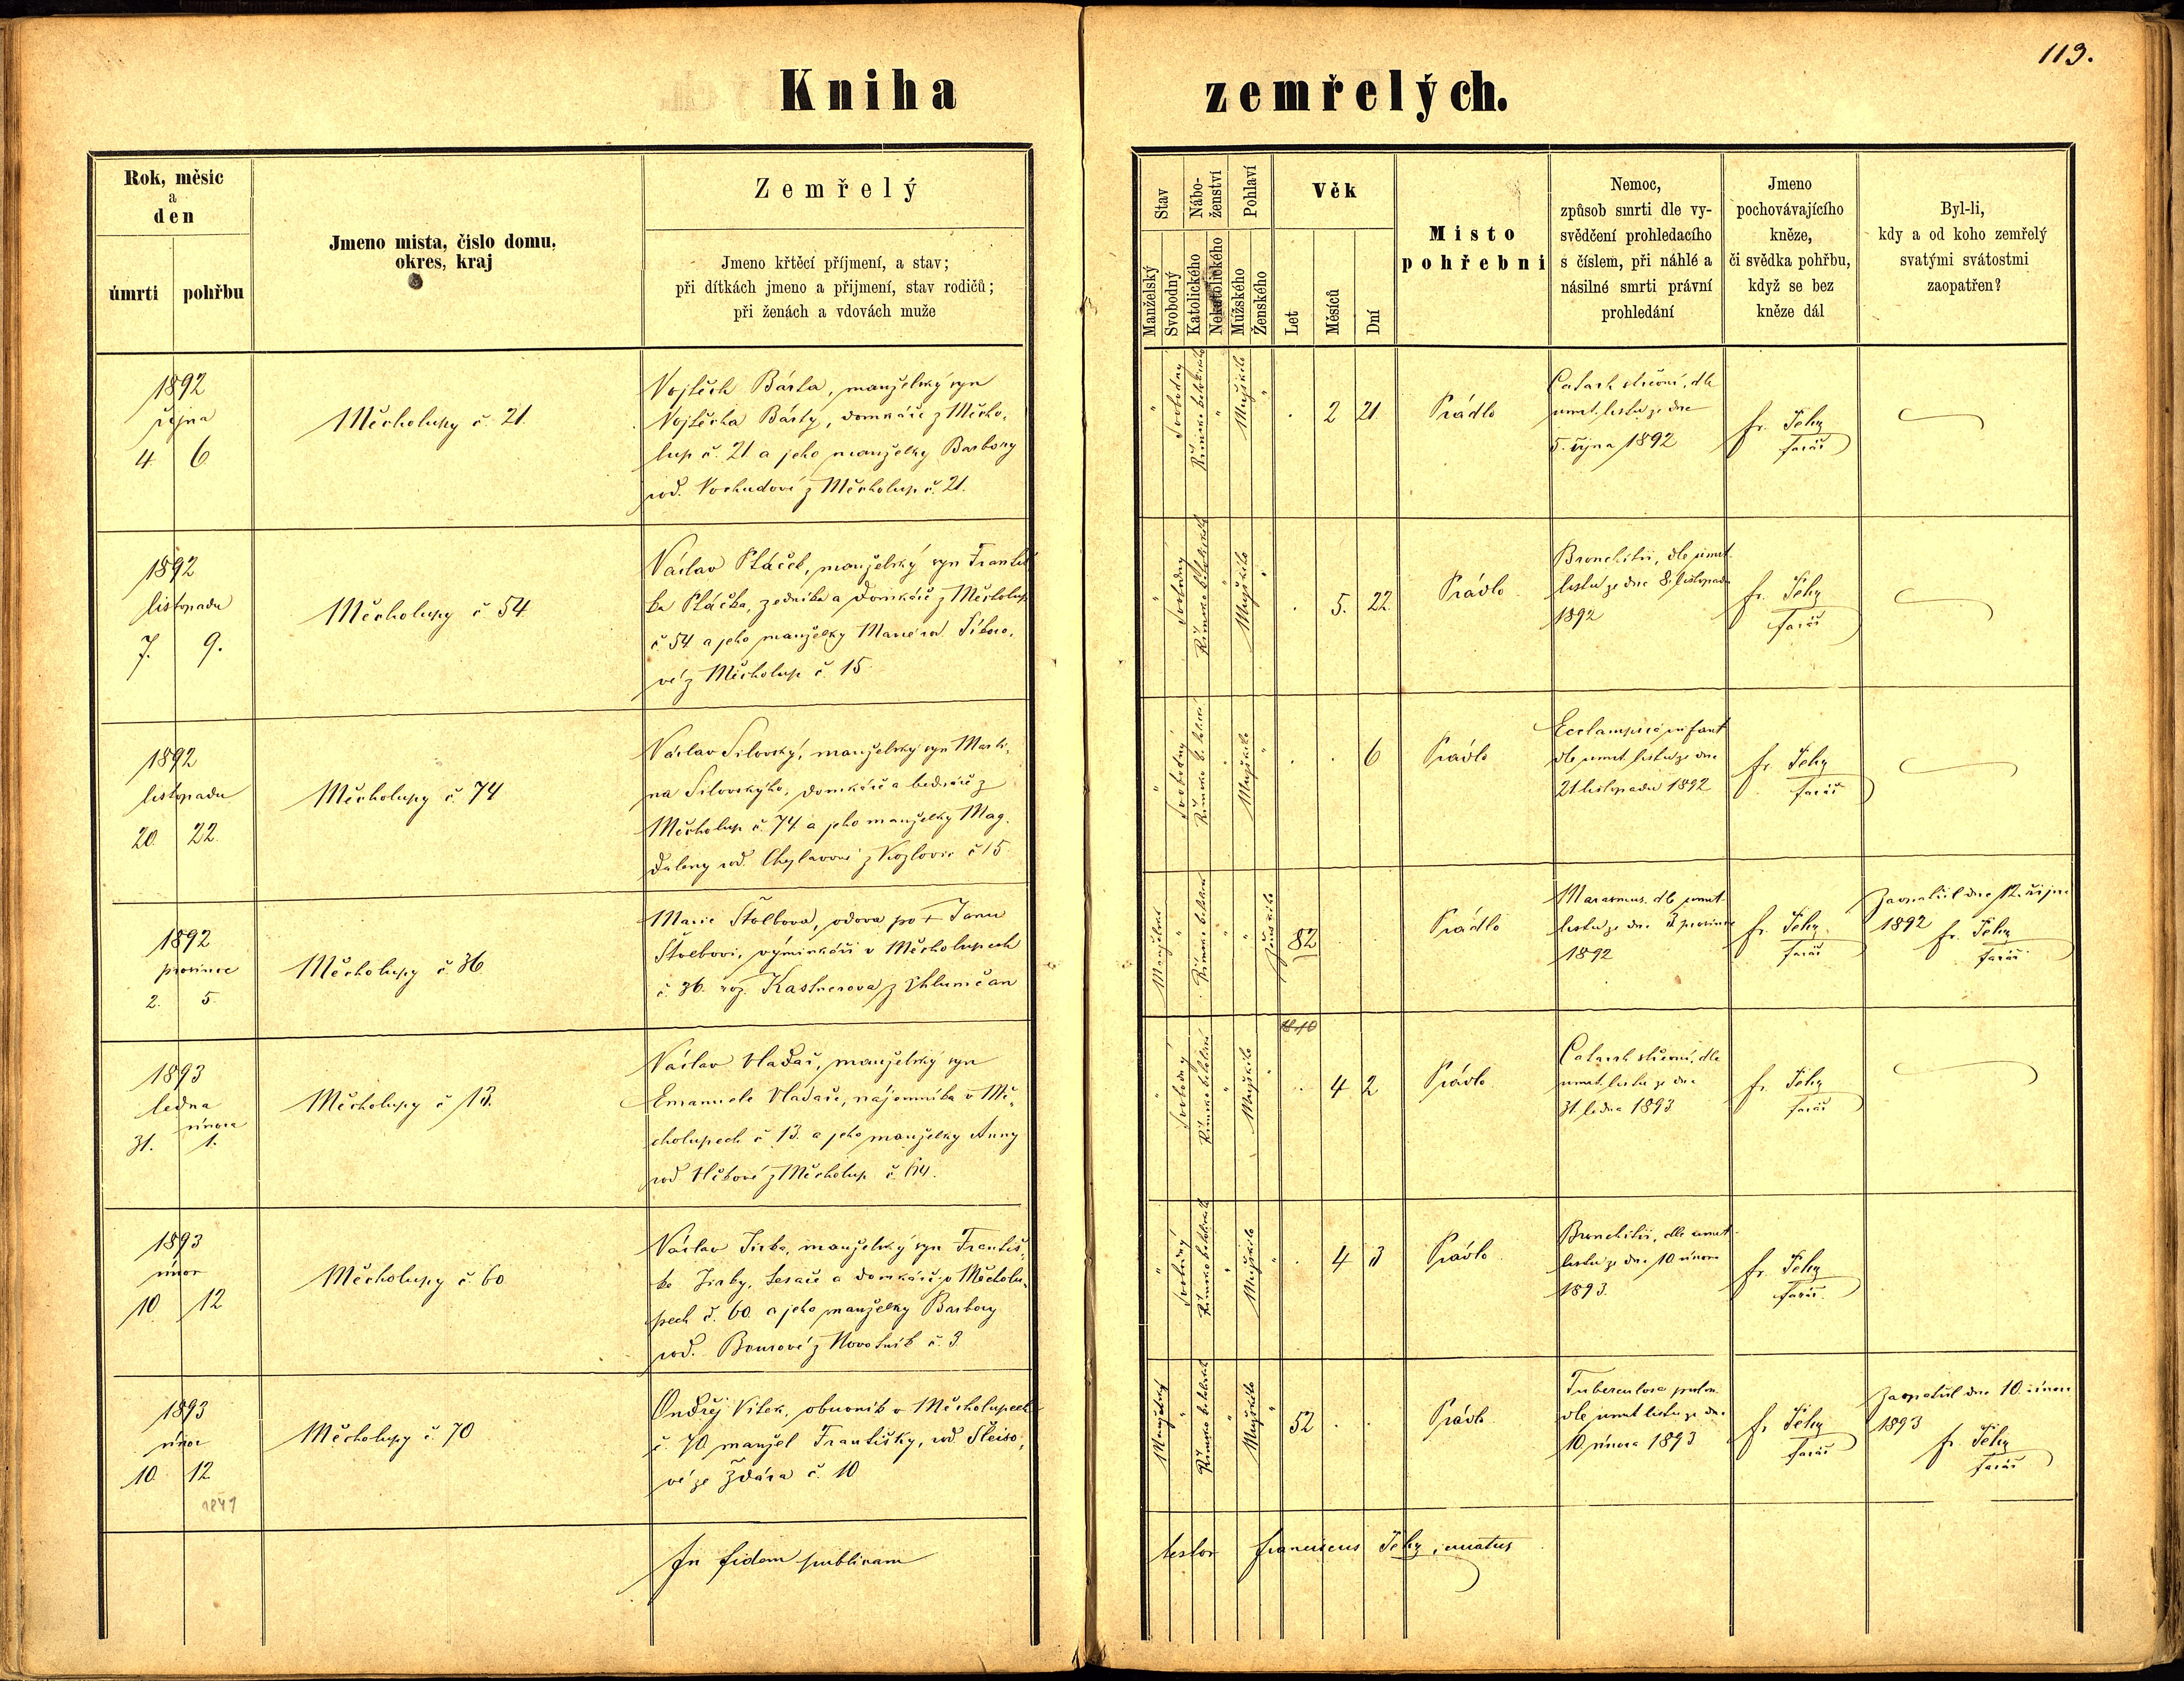 119.
Kniha zemřelých.
Rok, měsíc
a
den
úmrtí
pohřbu
Jmeno mista, čislo domu,
okres, kraj
Zemřelý
Jmeno křtěcí příjmení, a stav;
při dítkách jmeno a přijmení, stav rodičů;
při ženách a vdovách muže
Stav
Manželský
Svobodný
Nábo-
ženství
Katolického
Nekatolického
Pohlaví
Mužského
Ženského
Věk
Let
Měsíců
Dní
Misto
pohřebni
Nemoc,
způsob smrti dle vy-
svědčení prohledacího
s číslem, při náhlé a
násilné smrti právní
prohledání
Jmeno
pochovávajícího
kněze,
či svědka pohřbu,
když se bez
kněze dál
Byl-li,
kdy a od koho zemřelý
svatými svátostmi
zaopatřen?
1892
října
4. 6.
Měcholupy č. 21.
Vojtěch Bárta, manželský syn
Vojtěcha Bárty, domkáře z Měcho-
lup č. 21 a jeho manželky Barbory
rod. z Měcholup č. 21.
" Svobodný
Římsko katolické "
Mužského "
. 2 21
Prádlo
Catarh střevní, dle
umrt. listu ze dne
5. října 1892
fr. Tehy
farář
1892
listopadu
7. 9.
Měcholupy č 54
Václav Ptáček, manželský syn Františ
ka Ptáčka, zedníka a domkáře z Měcholup
č 54 a jeho manželky Marie rod.
vé z Měcholup č. 15
" Svobodný
Římsko katolické "
Mužského "
. 5. 22.
Prádlo
Bronchitis, dle úmrt.
listu ze dne 8. listopadu
1892
fr. Tehy
farář
1892
listopadu
20. 22.
Měcholupy č. 74
Václav Silovský, manželský syn Marti-
na Silovského, domkáře a bednáře z
Měcholup č. 74 a jeho manželky Mag-
daleny rod. z Kozlovic č 15
" Svobodný
Římsko katolické "
Mužského "
. . 6
Prádlo
Ecclampsie infant
dle umrt. listu ze dne
21. listopadu 1892
fr. Tehy
farář
1892
prosince
2. 5.
Měcholupy č. 36
Marie Štolbova, vdova po + Janu
Štolbovi, výminkáři v Měcholupech
č. 36. roz. Kastnerova z Chlumčan
Manželské "
Římsko katolické "
" Ženského
82 . .
Prádlo
Marasmus, dle umrt.
listu ze dne 3. prosince
1892
fr. Tehy
farář
Zaopatřil dne 12. října
1892
fr. Tehy
farář
1893
ledna
února
31. 1.
Měcholupy č 13.
Václav Vladař, manželský syn
Emanuele Vladaře, nájemníka v Mě-
cholupech č 13. a jeho manželky Anny
rod z Měcholup č. 64.
" Svobodný
Římsko katolické "
Mužského "
. 4 2
Prádlo
Catarrh střevní, dle
umrt. listu ze dne
31. ledna 1893
fr. Tehy
farář
1893
únor
10. 12
Měcholupy č. 60
Václav Jirka, manželský syn Františ-
ka Jirky, tesaře a domkáře v Měcholu-
pech č. 60 a jeho manželky Barbory
rod. z Novotník č. 3
" Svobodný
Římsko katolické "
Mužského "
. 4 3
Prádlo
Bronchitis, dle umrt.
listu ze dne 10 února
1893.
fr. Tehy
farář
1893
únor
10. 12
1841
Měcholupy č. 70
Ondřej Vitek, obuvník v Měcholupech
č. 70 manžel Františky, rod
vé ze Ždára č. 10
Manželský "
Římsko katolické "
Mužského "
52 . .
Prádlo
Tuberculosa pulm.
dle umrt listu ze dne
10. února 1893
fr. Tehy
farář
Zaopatřil dne 10. února
1893
fr. Tehy
farář
In fidem publicam
testor Franciscus Tehy, curatus